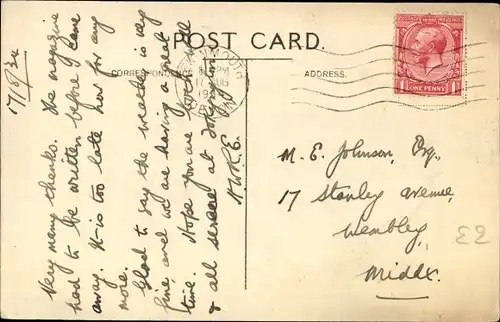 POST CARD.
CORRESPONDENCE
ADDRESS.
POSTAGE REVENUE
ONE PENNY
17/8/34
Very many thanks. The magazine
had to be written before I came
away. It is too late now for any
more.
Glad to say the weather is very
fine, and we are having a great
time. Hope you are well
& all serene at
H.W.R.E.
M. E. Johnson, Esq.,
17 Stanley avenue,
Wembley,
Middx.
£2